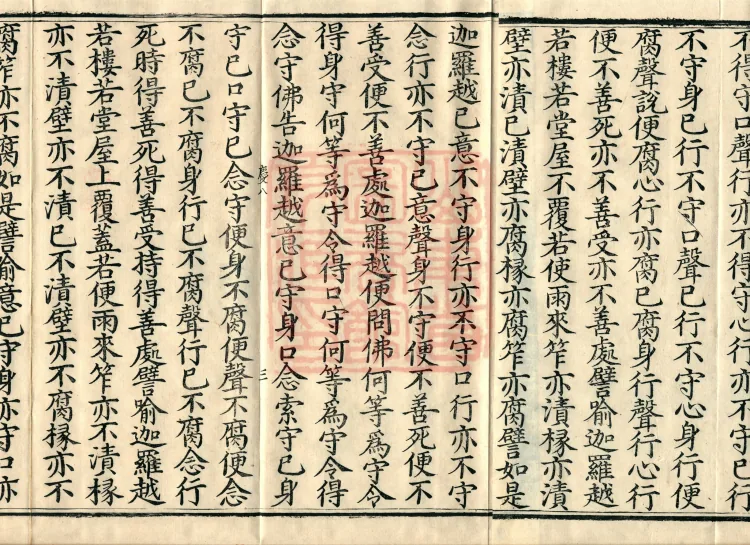 不得守口聲行亦不得守心行亦不守已行
不守身已行不守口聲已行不守心身行便
腐聲說便腐心行亦腐已腐身行聲行心行
便不善死亦不善受亦不善處譬喻迦羅越
若樓若堂屋不覆若使雨來笮亦漬椽亦漬
壁亦漬已漬壁亦腐椽亦腐笮亦腐譬如是
迦羅越已意不守身行亦不守口行亦不守
念行亦不守已意聲身不守便不善死便不
善受便不善處迦羅越便問佛何等爲守令
得身守何等爲守令得口守何等爲守令得
念守佛告迦羅越意已守身口念索守已身
三
守已口守已念守便身不腐便聲不腐便念
不腐已不腐身行已不腐聲行已不腐念行
死時得善死得善受持得善處譬喻迦羅越
若樓若堂屋上覆蓋若便雨來笮亦不漬椽
亦不漬壁亦不漬已不漬壁亦不腐椽亦不
腐笮亦不腐如是譬喻意已守身亦守口亦